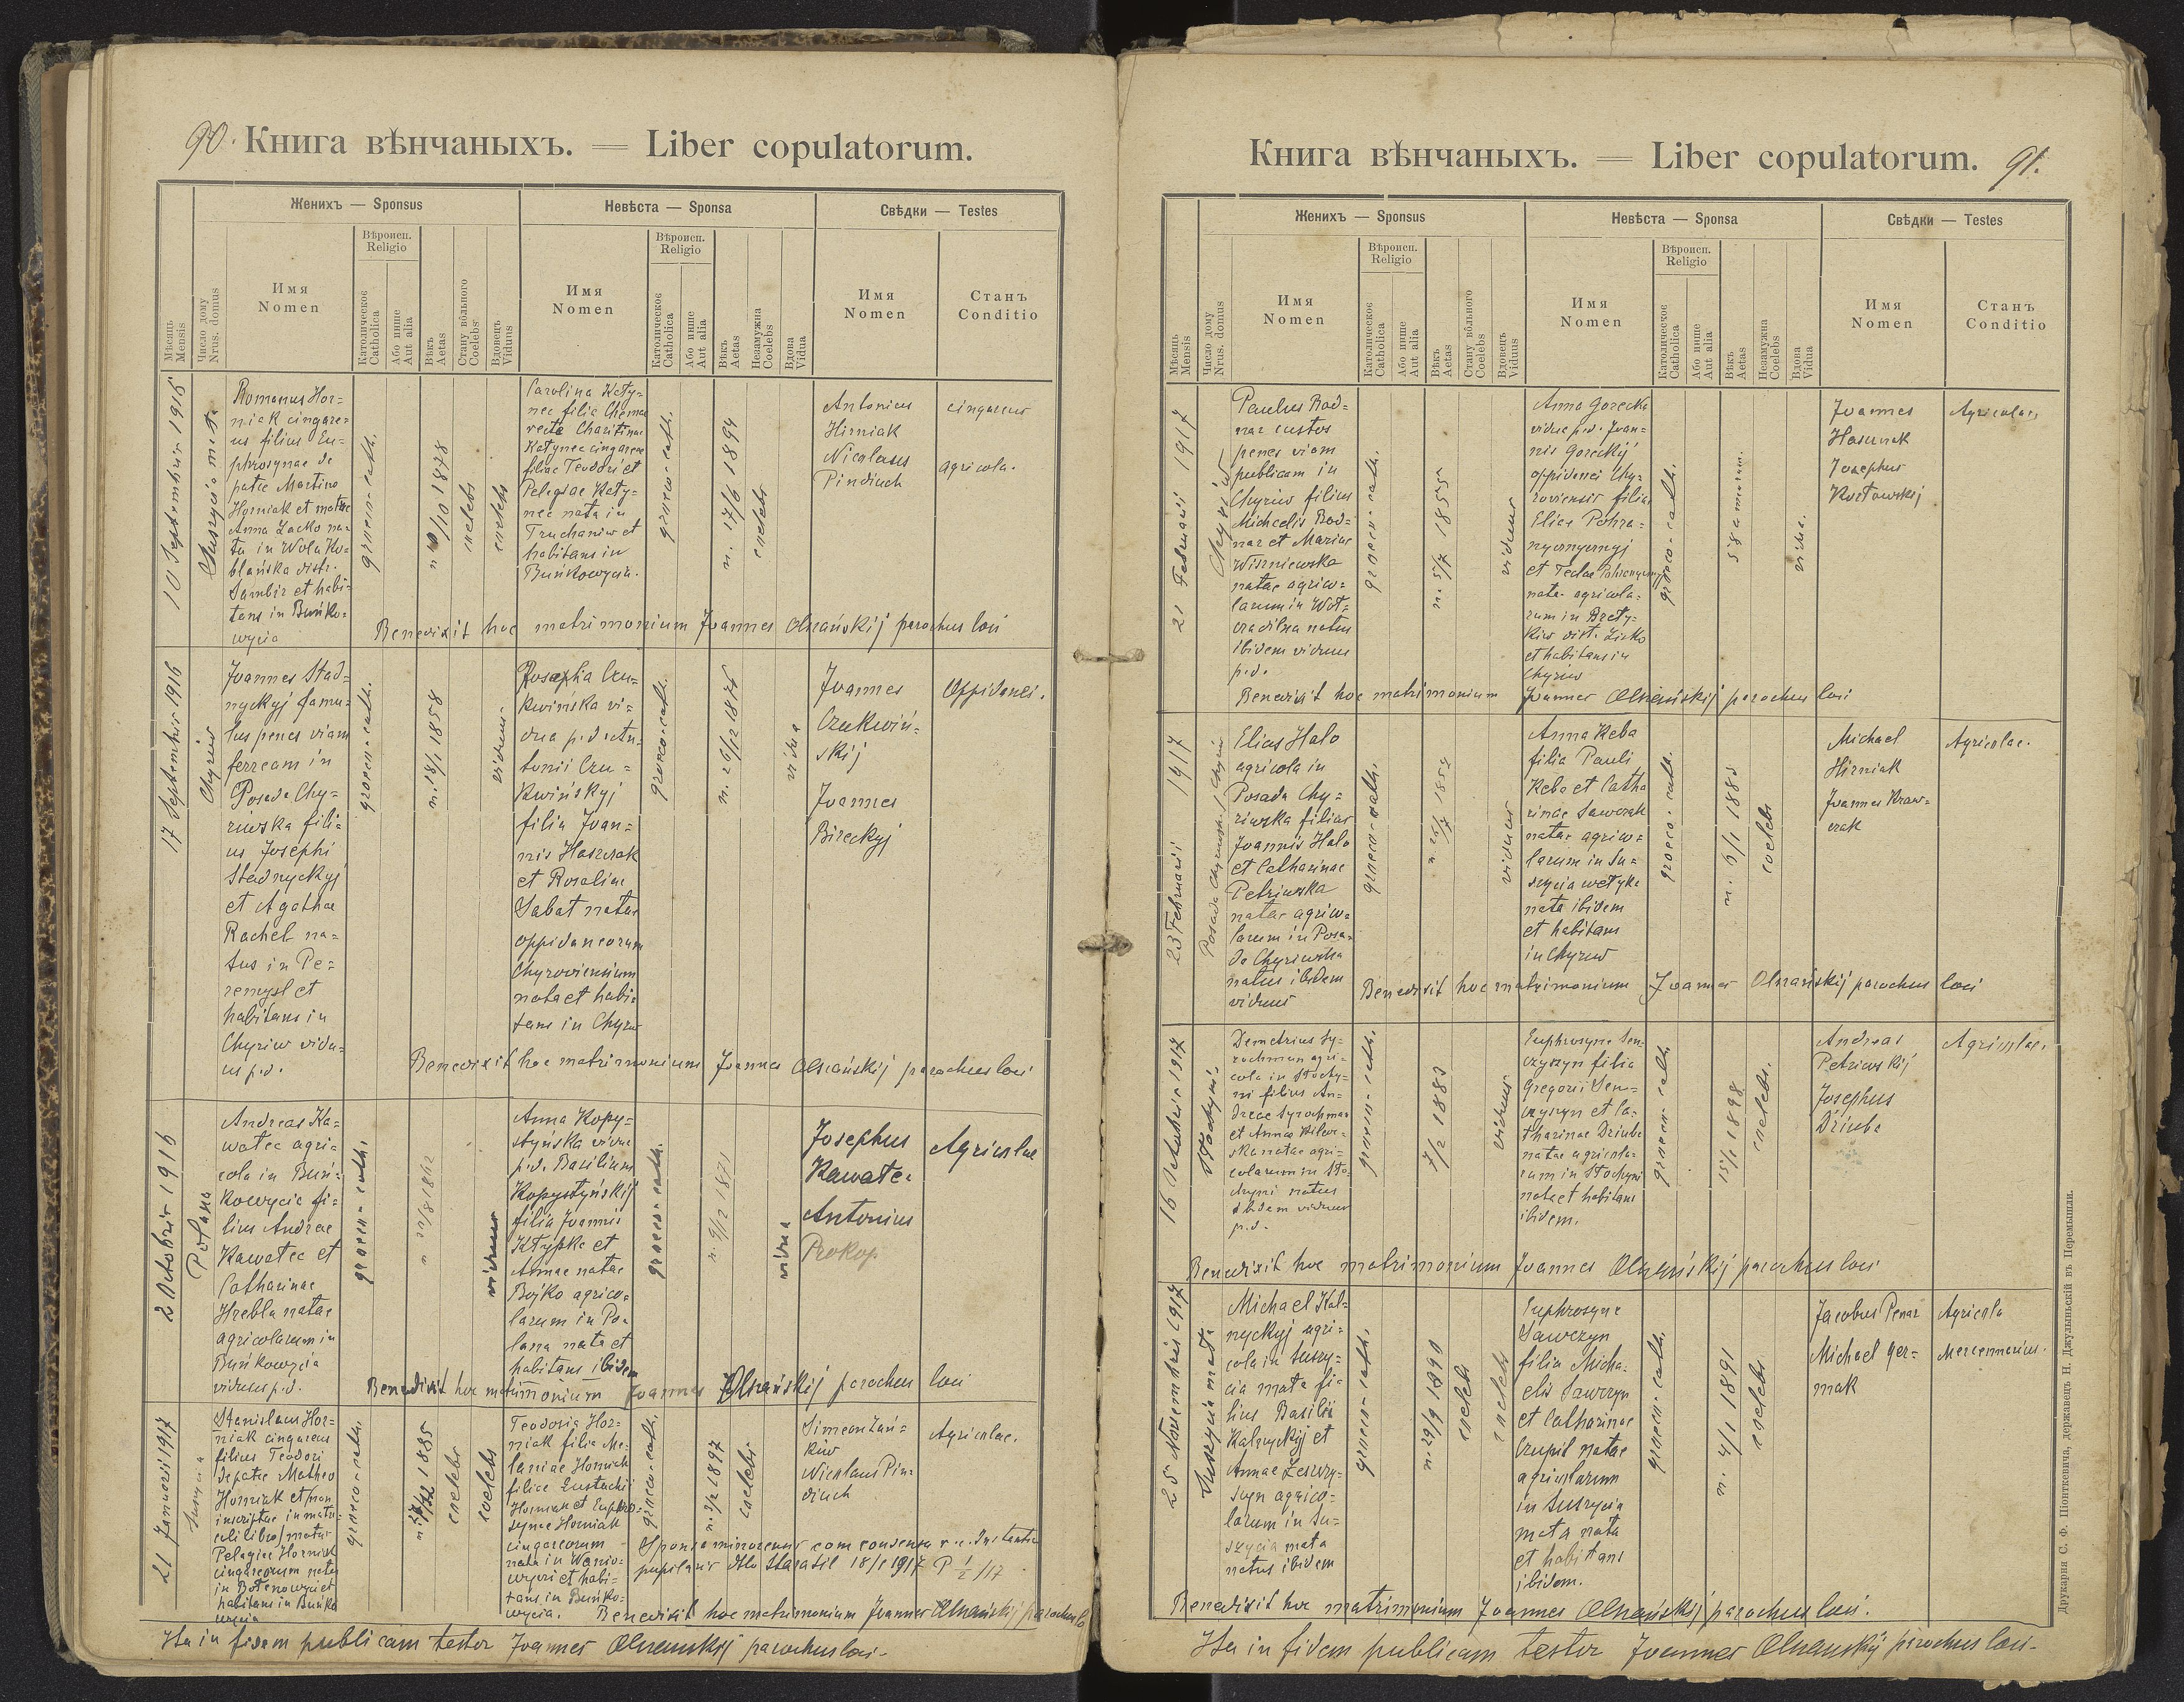 90. Книга вѣнчаныхъ. — Liber copulatorum.
Женихъ — Sponsus
Невѣста — Sponsa
Свѣдки — Testes
Мѣсяць Mensis
Число дому Nrus. domus
Имя Nomen
Вѣроисп. Religio
Католическое Catholica
Або инше Aut alia
Вѣкъ Aetas
Стану вôльного Coelebs
Вдовець Viduus
Имя Nomen
Вѣроисп. Religio
Католическое Catholica
Або инше Aut alia
Вѣкъ Aetas
Незамужна Coelebs
Вдова Vidua
Имя Nomen
Станъ Conditio
10 Septembris 1916
Suszycia mała
Romanus Hor=
niak cingare=
us filius Eu=
phrosynae de
patre Martino
Horniak et matre
Anna Lacko na=
ta in Wola Ko=
blańska distr.
Sambir et habi=
tans in Buńko=
wycia
graeco-cath.
1878
coelebs
coelebs
Carolina Katy=
nec filia
recte Charitinae
Katynec cingarae
filiae Teodori et
Pelagiae Katy=
nec nata in
Truchaniw et
habitans in
Buńkowycia.
graeco-cath.
n. 17/6 1894
coelebs
Antonius
Hirniak
Nicolaus
Pindiuch
cingareus
agricola.
Benedixit hoc matrimonium Joannes Olszańskij parochus loci
17 Septembris 1916
Chyriw
Joannes Stad=
nyckyj famu=
lus penes viam
ferream in
Posada Chy=
riwska fili=
us Josephi
Stadnyckyj
et Agathae
Rachel na=
tus in Pe=
remysl et
habitans in
Chyriw vidu=
us p.d.
graeco-cath.
n. 18/1 1858
viduus
Josepha Czu=
kwińska vi=
dua p.d. An=
tonii Czu=
kwińskyj
filia Joan=
nis Haszczak
et Rosaliae
Sabat natae
oppidaneorum
Chyroviensium
nata et habi=
tans in Chyriw
graeco-cath.
n. 26/12 1876
vidua
Joannes
Czukwiń=
skij
Joannes
Bireckyj
Oppidanei.
Benedixit hoc matrimonium Joannes Olszańskij parochus loci
2 Octobris 1916
Polana
Andreas Ka=
watec agri=
cola in Buń=
kowycia fi=
lius Andreae
Kawatec et
Catharinae
Hrebla natae
agricolarum in
Buńkowycia
viduus p.d.
graeco-cath.
1862
viduus
Anna Kopy=
styńska vidua
p.d. Basilium
Kopystyńskij
filia Joannis
Kłypka et
Annae natae
Bojko agrico=
larum in Po=
lana nata et
habitans ibidem
graeco-cath.
n. 9/12 1871
vidua
Josephus
Kawatec
Antonius
Prokop
Agricolae
Benedixit hoc matrimonium Joannes Olszańskij parochus loci
21 Januarii 1917
Stanislaus Hor=
niak cingareus
filius Teodori
de patre Matheo
Horniak et
inscriptae in matri=
culi libro/ matre
Pelagiae Horniak
cingareorum natus
in
habitans in Buńko
wycia
graeco-cath.
1885
coelebs
coelebs
Teodosia Hor=
niak filia Me=
laniae Horniak
filiae Eustachii
Horniak et Euphro=
synae Horniak
cingareorum
nata in
et habi=
tans in Buńko=
wycia.
graeco-cath.
n. 3/2 1897
coelebs
Simeon Łań=
kiw
Nicolaus Pin=
diuch
Agricolae.
Sponsa minorennis cum consensu
pupilaris ddto 18/1 1917 P 1/2 /17
Benedixit hoc matrimonium Joannes Olszańskij parochus lo
Ita in fidem publicam testor Joannes Olszanskij parochus loci.
Книга вѣнчаныхъ. — Liber copulatorum. 91.
Женихъ — Sponsus
Невѣста — Sponsa
Свѣдки — Testes
Мѣсяць Mensis
Число дому Nrus. domus
Имя Nomen
Вѣроисп. Religio
Католическое Catholica
Або инше Aut alia
Вѣкъ Aetas
Стану вôльного Coelebs
Вдовець Viduus
Имя Nomen
Вѣроисп. Religio
Католическое Catholica
Або инше Aut alia
Вѣкъ Aetas
Незамужна Coelebs
Вдова Vidua
Имя Nomen
Станъ Conditio
21 Februarii 1917
Chyriw
Paulus Bod=
nar custos
penes viam
publicam in
Chyriw filius
Michaelis Bod=
nar et Mariae
Wiszniewska
natae agrico=
larum in Woł=
natus
ibidem viduus
p.d.
graeco-cath.
n. 5/7 1855
viduus
Anna Gorecka
vidua p.d. Joan=
nis Goreckij
oppidanei Chy=
roviensis filia
Eliae
et Teclae
nata agricola=
rum in
kiw distr. Lisko
et habitans in
Chyriw
graeco-cath.
58 annorum.
vidua.
Joannes
Hasiuk
Josephus
Kozłowskij
Agricolae,
Benedixit hoc matrimonium Joannes Olszańskij parochus loci
23 Februarii 1917
Posada Chyriwska / Chyriw
Elias Halo
agricola in
Posada Chy=
riwska filius
Joannis Halo
et Catharinae
Petriwska
natae agrico=
larum in Posa=
da Chyriwska
natus ibidem
viduus
graeco-cath.
viduus
Anna Keba
filia Pauli
Keba et Catha
rinae Sawczak
natae agrico=
larum in Su=
szycia wełyka
nata ibidem
et habitans
in Chyriw
graeco-cath.
n. 6/1 1888
coelebs
Michael
Hirniak
Joannes Kraw=
czak
Agricolae.
Benedixit hoc matrimonium Joannes Olszańskij parochus loci
16 Octobris 1917
Słochyni.
Demetrius Sy=
rochman agri=
cola in Słochy=
ni filius An=
dreae Syrochman
et Annae
ska natae agri=
colarum in Sło=
chyni natus
ibidem viduus
p.d.
graeco-cath.
7/2 1883
viduus
Euphrosyna Sen=
czyszyn filia
Gregorii Sen=
czyszyn et Ca=
tharinae Dziuba
natae agricola=
rum in Słochyni
nata et habitans
ibidem.
graeco-cath
15/1 1898
coelebs.
Andreas
Petriwskij
Josephus
Dziuba
Agricolae.
Benedixit hoc matrimonium Joannes Olszańskij parochus loci
25 Novembris 1917
Suszycia mała
Michael Kal=
nyckyj agri=
cola in Suszy=
cia mała fi=
lius Basilii
Kalnyckyj et
Annae
agrico=
larum in Su=
szycia mała
natus ibidem
graeco-cath.
n. 29/9 1890
coelebs
coelebs
Euphrosyna
Sawczyn
filia Micha=
elis Sawczyn
et Catharinae
Czupil natae
agricolarum
in Suszycia
mała nata
et habitans
ibidem.
graeco-cath.
n. 4/1 1891
coelebs
Jacobus Penar
Michael Ger=
mak
Agricola
Mercennarius.
Benedixit hoc matrimonium Joannes Olszańskij parochus loci.
Ita in fidem publicam testor Joannes Olszanskij parochus loci.
Друкарня С. Ф. Піонткевича, державець Н. Джулыньскій въ Перемышли.